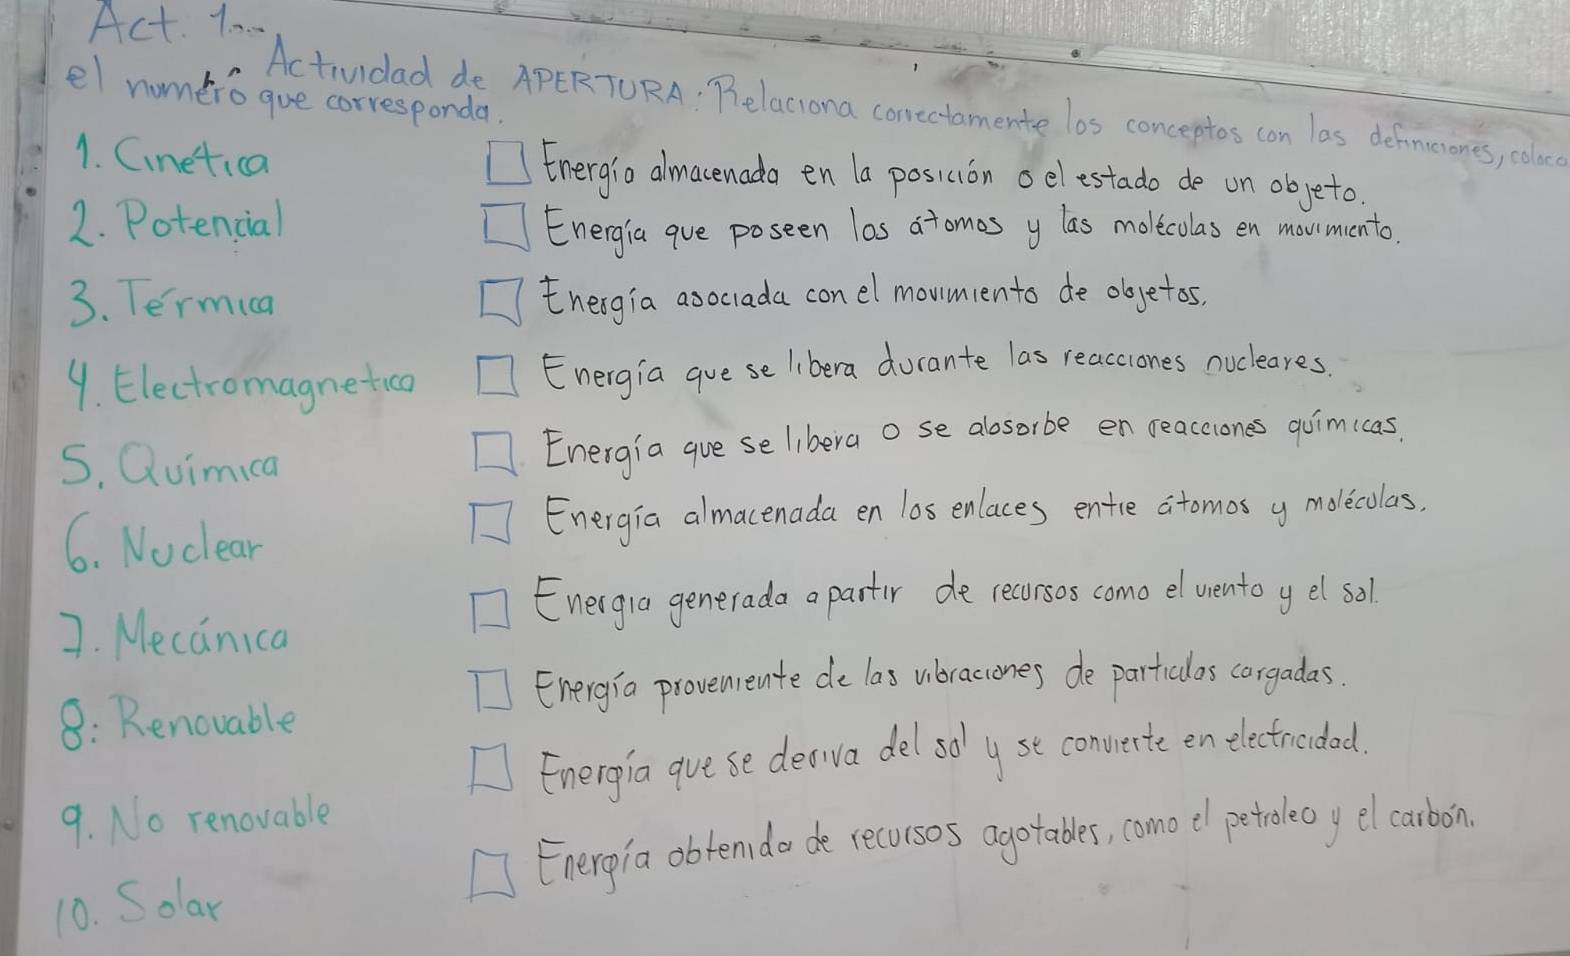 Act. 1...
Actividad de APERTURA: Relaciona correctamente los conceptos con las definiciones, coloca
el numero que corresponda.
1. Cinética
□ Energía almacenada en la posición o el estado de un objeto.
2. Potencial
□ Energía que poseen los átomos y las moléculas en movimiento.
3. Térmica
□ Energía asociada con el movimiento de objetos.
4. Electromagnetica
□ Energía que se libera durante las reacciones nucleares.
5. Química
□ Energía que se libera o se absorbe en reacciones químicas.
6. Nuclear
□ Energía almacenada en los enlaces entre átomos y moléculas.
7. Mecánica
□ Energia generada a partir de recursos como el viento y el sol.
8. Renovable
□ Energía proveniente de las vibraciones de particulas cargadas.
9. No renovable
□ Energía que se deriva del sol y se convierte en electricidad.
10. Solar
□ Energía obtenida de recursos agotables, como el petroleo y el carbón.